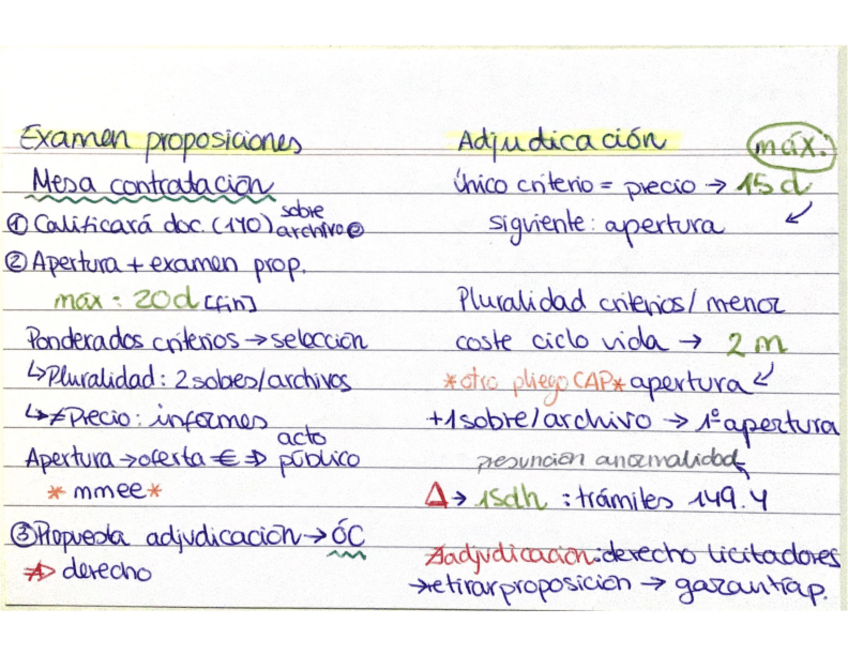 Examen proposiciones
Mesa contratación
① Calificará doc. (140) sobre archivo
② Apertura + examen prop.
máx: 20d [fin]
Ponderados criterios → selección
↳ Pluralidad: 2 sobes/archivos
↳ ≠ Precio: informes
Apertura → oferta € ⇒ acto público
* mmee *
③ Propuesta adjudicación → ÓC
⇏ derecho
Adjudicación
máx.
Único criterio = precio → 15 d
siguiente: apertura ↙
Pluralidad criterios / menor
coste ciclo vida → 2 m
*otro pliego CAP* apertura ↙
+1 sobre/archivo → 1º apertura
presunción anormalidad
Δ → 15dh : trámites 149.4
∄ adjudicación: derecho licitadores
→ retirar proposición → garantía p.